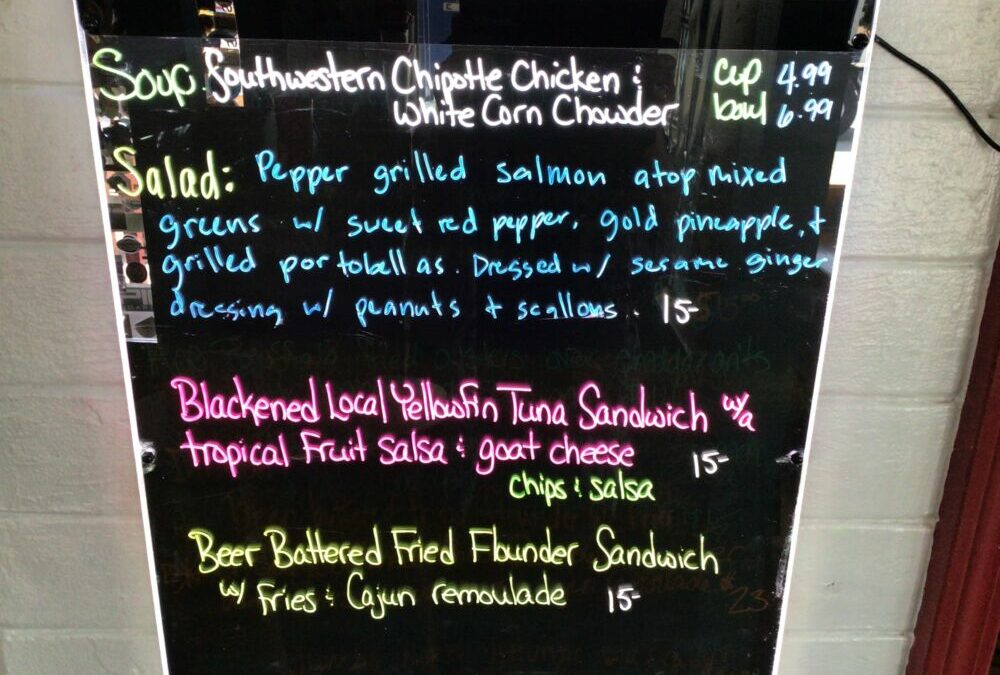 Soup Southwestern Chipotle Chicken & cup 4.99
White Corn Chowder bowl 6.99
Salad: Pepper grilled salmon atop mixed
greens w/ sweet red pepper, gold pineapple, +
grilled portobellas. Dressed w/ sesame ginger
dressing w/ peanuts + scallons. 15-
Blackened Local Yellowfin Tuna Sandwich w/a
tropical Fruit salsa & goat cheese 15-
chips & salsa
Beer Battered Fried Flounder Sandwich
w/ Fries & Cajun remoulade 15-